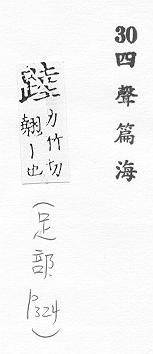 30四聲篇海
踛
力竹切
翹丨也
(足部 P324)